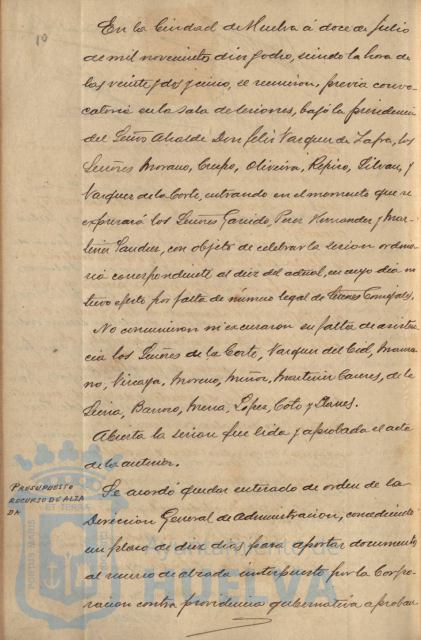 10
En la Ciudad de Huelva á doce de Julio
de mil novecientos diez y ocho, siendo la hora de
las veinte y dos y cinco, se reunieron, previa convo-
catoria en la sala de sesiones, bajo la presidencia
del Señor Alcalde Don Felix Vazquez de Zafra, los
Señores Morano, Crespo, Oliveira, Répiso, Silvan, y
Vazquez de la Corte, entrando en el momento que se
expresará los Señores Garrido, Perez Hernandez y Mar-
tinez Sanchez, con objeto de celebrar la sesion ordina-
ria correspondiente al diez del actual, en cuyo dia no
tuvo efecto por falta de número legal de Sres Concejales.
No concurrieron ni excusaron su falta de asisten-
cia los Señores de la Corte, Vazquez del Cid,
no, Vizcaya, Moreno, Muñoz, Martinez Caceres, de la
Barroso, Mena, Lopez, Coto y
Abierta la sesion fue leida y aprobada el acta
de la anterior.
PRESUPUESTO
RECURSO DE ALZA
DA
Se acordó quedar enterado de orden de la
Direccion General de Administracion, concediendo
un plazo de diez dias para aportar documentos
al recurso de alzada interpuesto por la Corpo-
racion contra providencia gubernativa aproban-
PORTUS MARIS
ET TERRAE
Ayuntamiento de
HUELVA